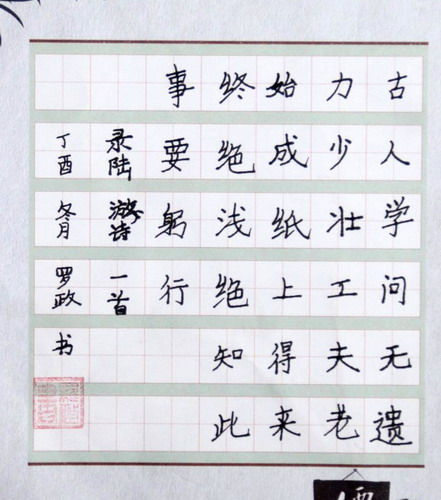 古人学问无遗
力少壮工夫老
始成纸上得来
终绝浅绝知此
事要躬行
录陆游诗一首
丁酉冬月罗政书